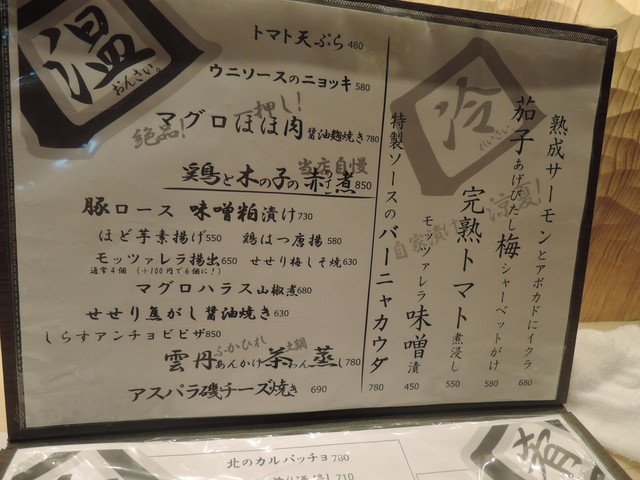 温
おんさい。
トマト天ぷら 480
ウニソースのニョッキ 580
一押し!
絶品!
マグロほほ肉 醤油麹焼き 780
当店自慢
鶏と木の子の赤ワイン煮 850
豚ロース 味噌粕漬け 730
ほど芋素揚げ 550 鶏はつ唐揚 580
モッツァレラ揚出 650 せせり梅しそ焼 630
通常4個 (+100円で6個に!)
マグロハラス山椒煮 680
せせり焦がし醤油焼き 630
しらすアンチョビピザ 850
ふかひれ 土鍋
雲丹あんかけ茶わん蒸し 780
アスパラ磯チーズ焼き 690
冷
れいさい。
熟成サーモンとアボカドにイクラ 680
涼夏!
茄子あげびたし梅シャーベットがけ 580
完熟トマト煮浸し 550
自家漬け
モッツァレラ味噌漬 450
特製ソースのバーニャカウダ 780
北のカルパッチョ 780
710